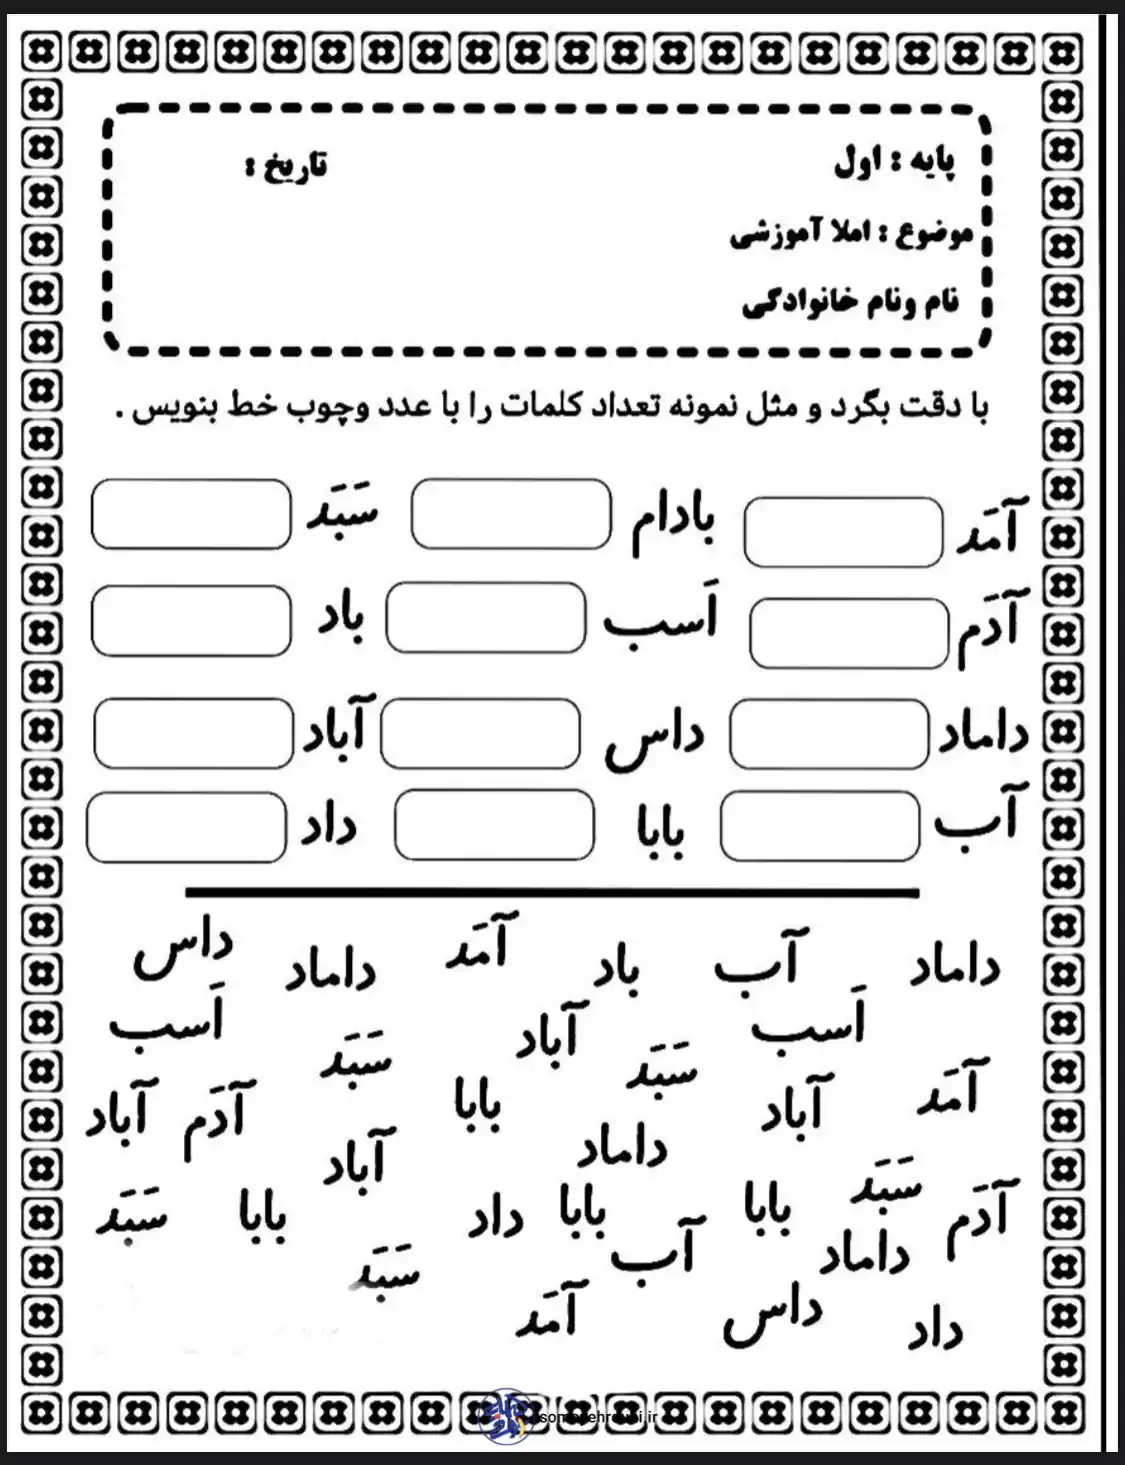 پایه : اول
تاریخ :
موضوع : املا آموزشی
نام ونام خانوادگی
با دقت بگرد و مثل نمونه تعداد کلمات را با عدد وچوب خط بنویس .
آمَد بادام سَبَد
آدَم اَسب باد
داماد داس آباد
آب بابا داد
داماد آب باد آمَد داماد داس
اَسب آباد سَبَد سَبَد اَسب
آمَد آباد بابا آدَم آباد
داماد آباد
آدَم سَبَد بابا بابا داد بابا سَبَد
داماد آب سَبَد
داد داس آمَد